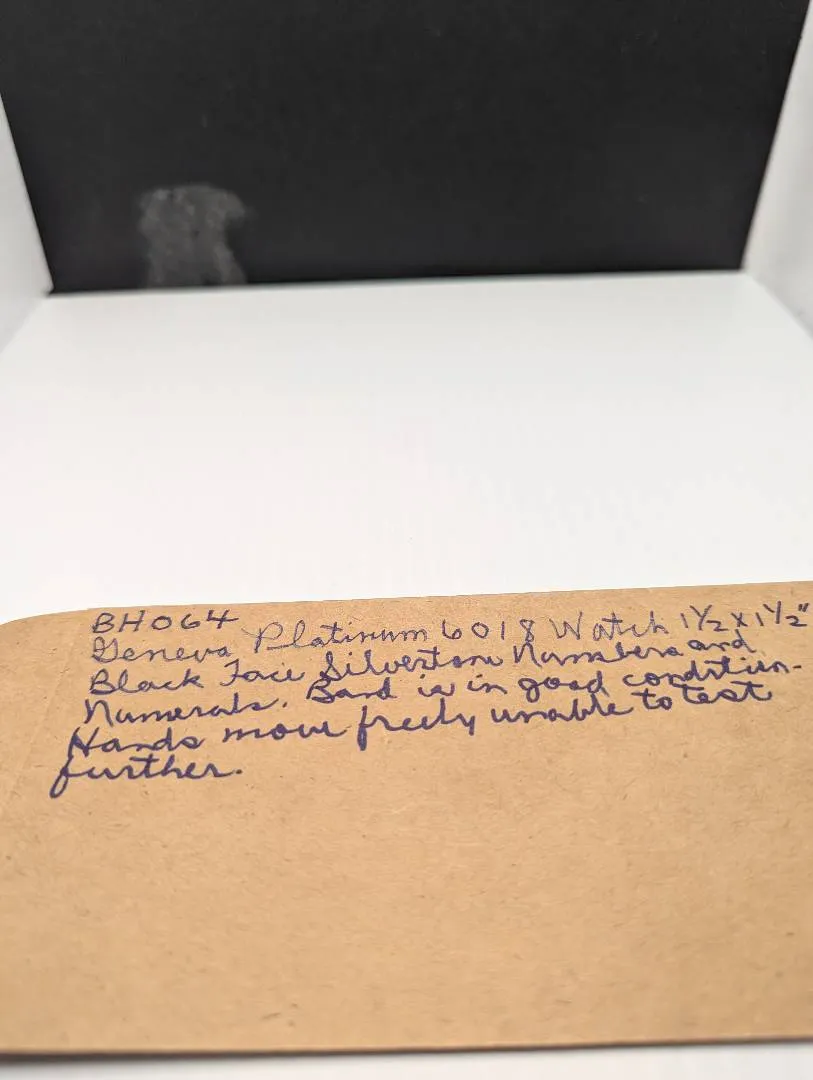 BH064
Geneva Platinum 6018 Watch 1 1/2 x 1 1/2"
Black Face Silvertone Numbers and
Numerals. Band is in good condition.
Hands move freely unable to test
further.